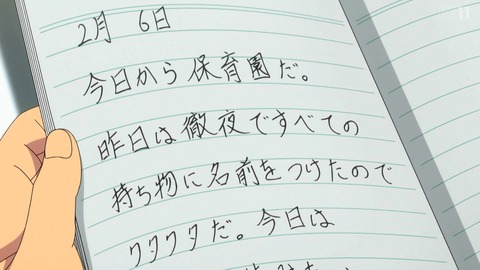 2月 6日
今日から保育園だ。
昨日は徹夜ですべての
持ち物に名前をつけたので
クタクタだ。今日は